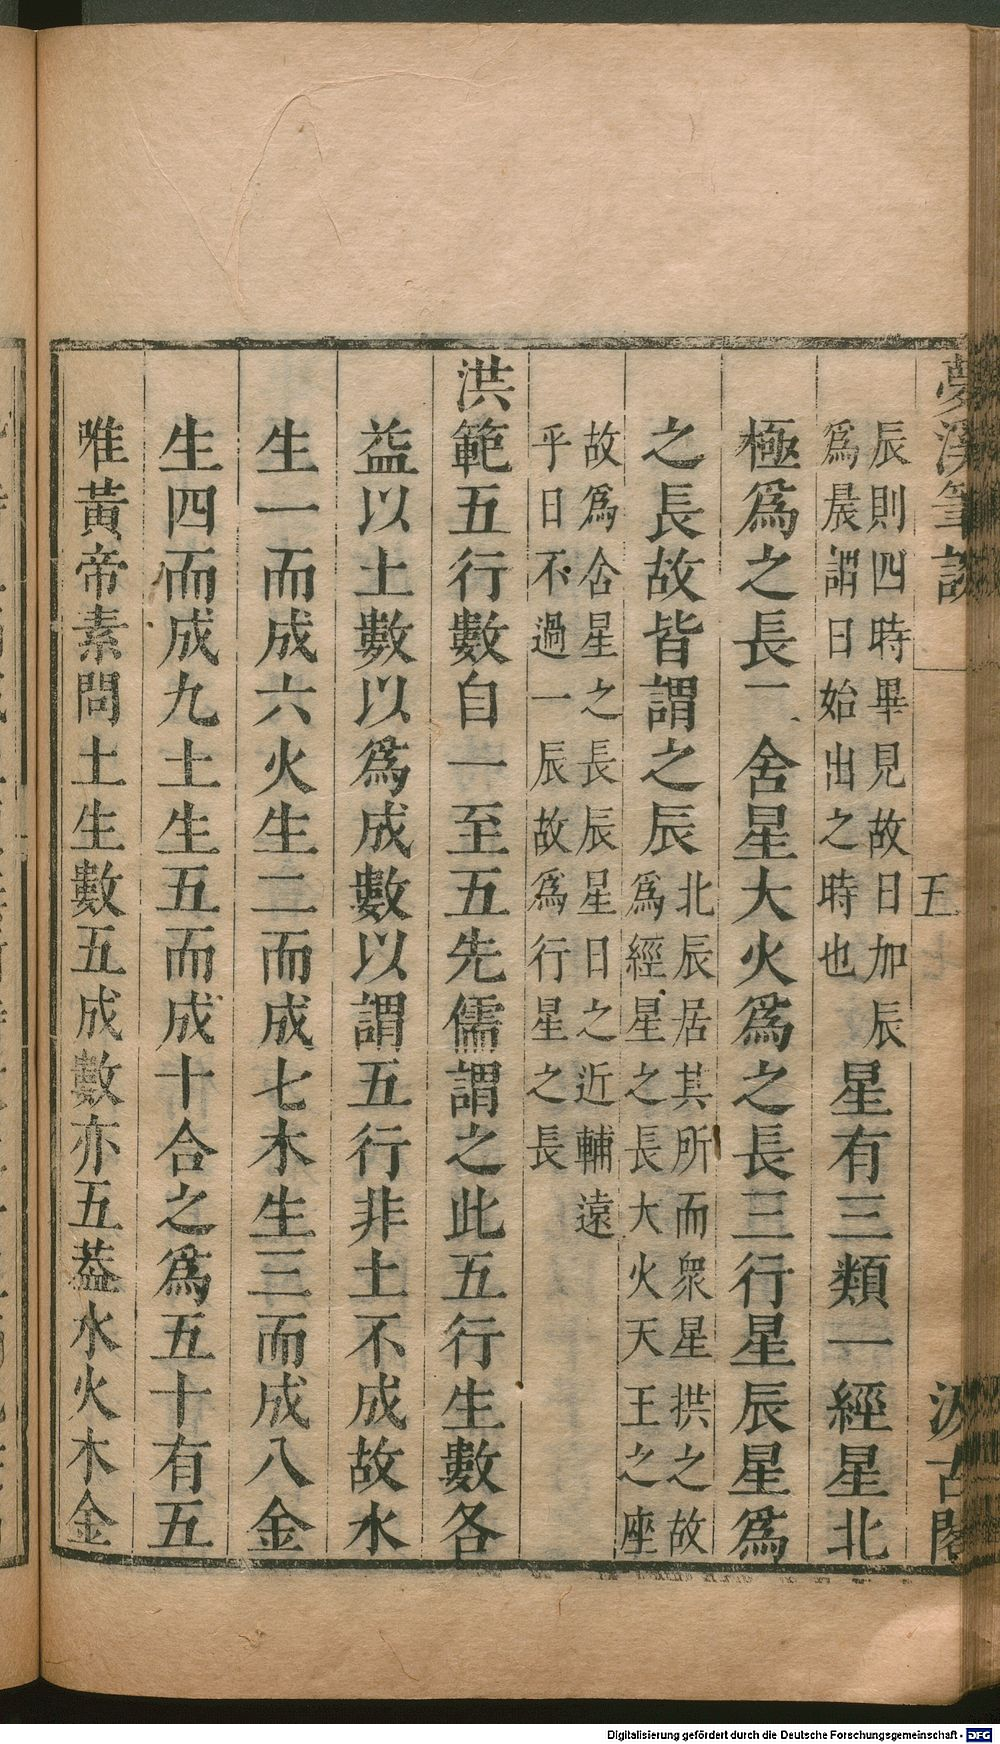 夢溪筆談
五
汲古閣
辰則四時畢見故日加辰
爲晨謂日始出之時也
星有三類一經星北
極爲之長二舍星大火爲之長三行星辰星爲
之長故皆謂之辰
北辰居其所而衆星拱之故
爲經星之長大火天王之座
故爲舍星之長辰星日之近輔遠
乎日不過一辰故爲行星之長
洪範五行數自一至五先儒謂之此五行生數各
益以土數以爲成數以謂五行非土不成故水
生一而成六火生二而成七木生三而成八金
生四而成九土生五而成十合之爲五十有五
唯黃帝素問土生數五成數亦五葢水火木金
Digitalisierung gefördert durch die Deutsche Forschungsgemeinschaft - DFG